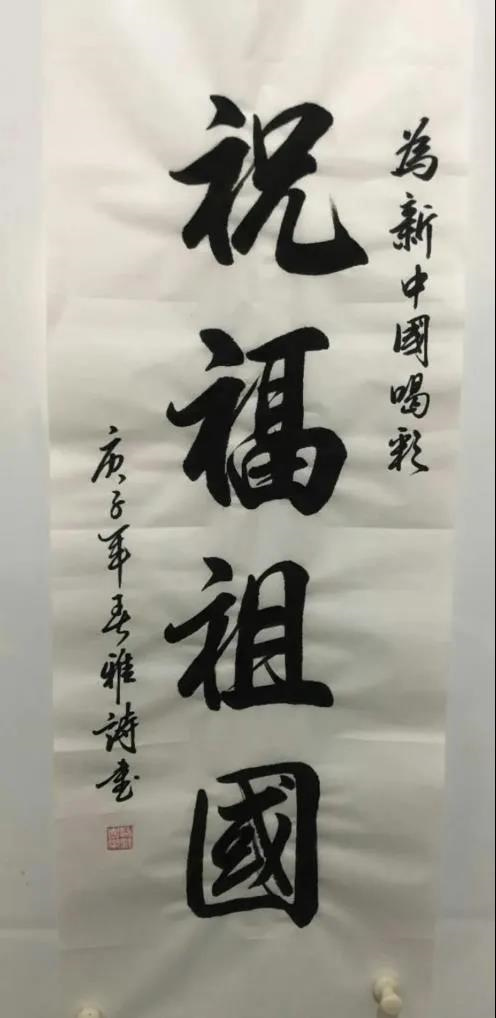 為新中國喝彩
祝福祖國
庚子年春雅詩書